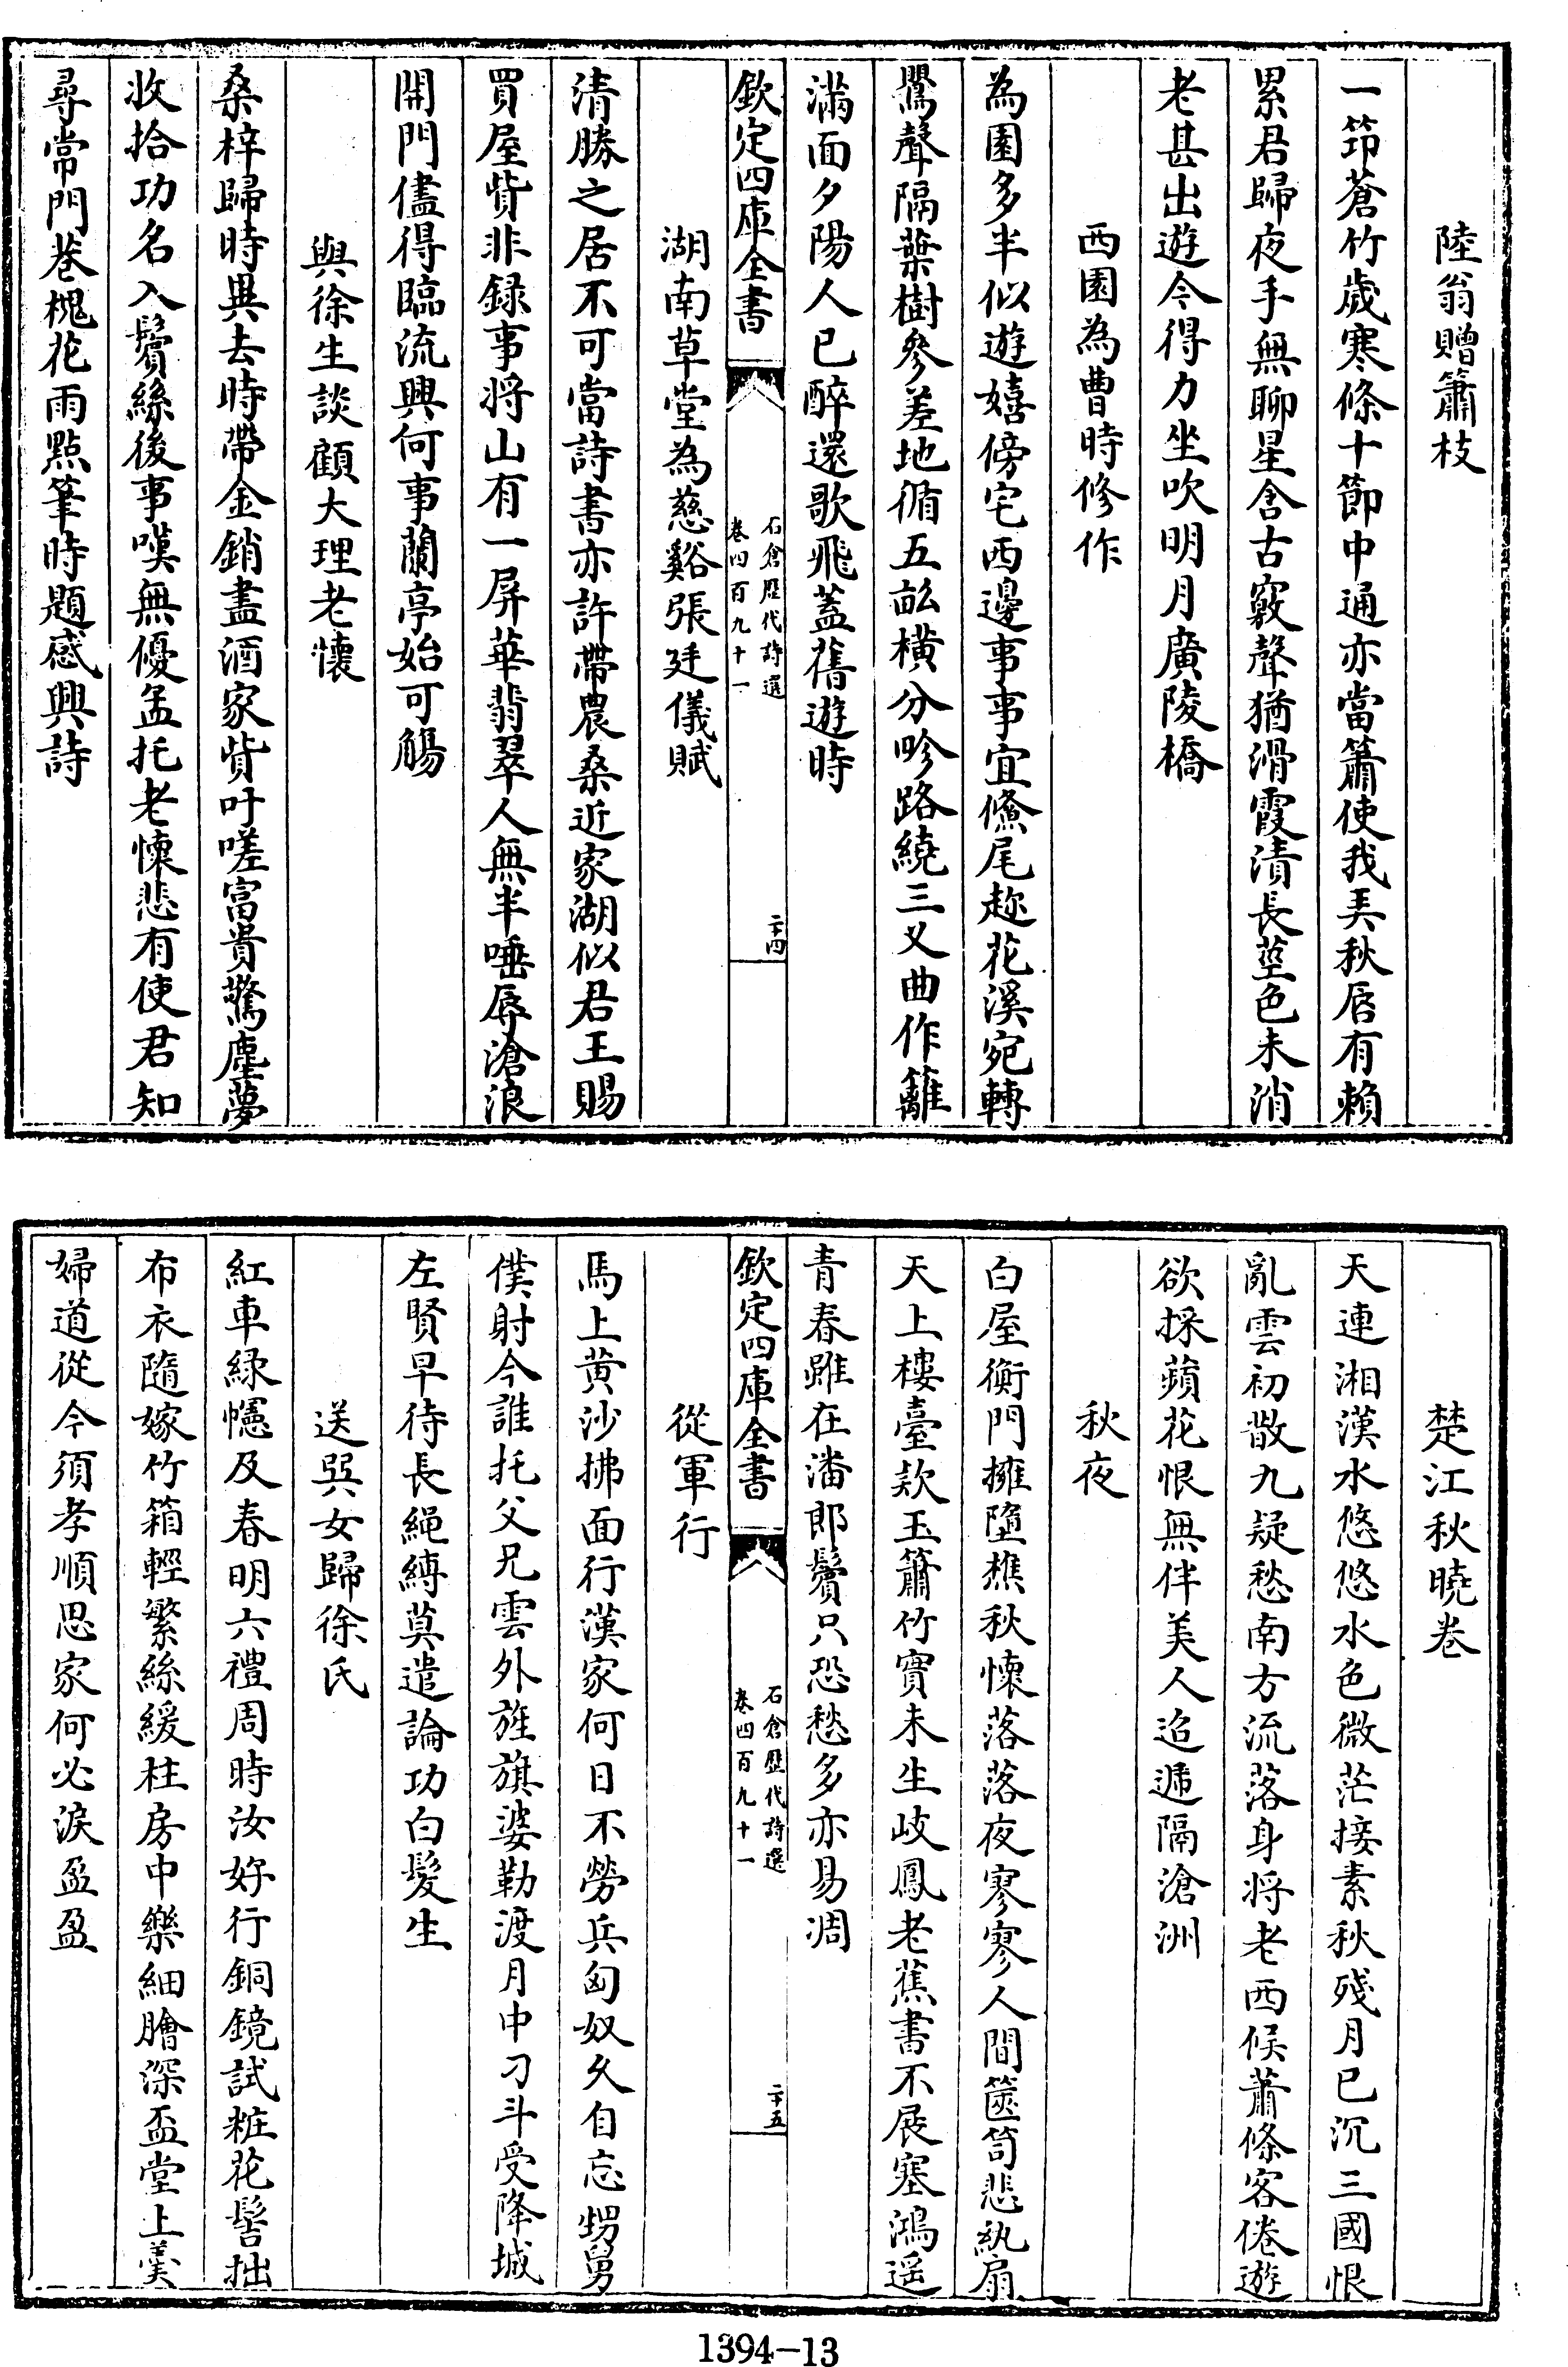 陸翁贈簫枝
一笻蒼竹歲寒條十節中通亦當簫使我弄秋唇有賴
累君歸夜手無聊星含古竅聲猶滑霞漬長莖色未消
老甚出遊今得力坐吹明月廣陵橋
西園為曹時修作
為園多半似遊嬉傍宅西邊事事宜鯈尾趂花溪宛轉
鸎聲隔葉樹參差地循五畝橫分畛路繞三义曲作籬
滿面夕陽人已醉還歌飛蓋舊遊時
欽定四庫全書
石倉歷代詩選
卷四百九十一
二十四
湖南草堂為慈谿張廷儀賦
清勝之居不可當詩書亦許帶農桑近家湖似君王賜
買屋貲非録事將山有一屏華翡翠人無半唾辱滄浪
開門儘得臨流興何事蘭亭始可觴
與徐生談顧大理老懷
桑梓歸時異去時帶金銷盡酒家貲吁嗟富貴驚塵夢
收拾功名入鬢絲後事嘆無優孟托老懷悲有使君知
尋常門巷槐花雨點筆時題感興詩
楚江秋曉卷
天連湘漢水悠悠水色微茫接素秋殘月已沉三國恨
亂雲初散九疑愁南方流落身將老西候蕭條客倦遊
欲採蘋花恨無伴美人迢遞隔滄洲
秋夜
白屋衡門擁墮樵秋懷落落夜寥寥人間篋笥悲紈扇
天上樓臺欵玉簫竹實未生岐鳳老蕉書不展塞鴻遥
青春雖在潘郎鬢只恐愁多亦易凋
欽定四庫全書
石倉歷代詩選
卷四百九十一
二十五
從軍行
馬上黄沙拂面行漢家何日不勞兵匈奴久自忘甥舅
僕射今誰托父兄雲外旌旗婆勒渡月中刁斗受降城
左賢早待長繩縛莫遣論功白髮生
送巽女歸徐氏
紅車緑幰及春明六禮周時汝好行銅鏡試粧花髻拙
布衣隨嫁竹箱輕繁絲緩柱房中樂細膾深盃堂上羹
婦道從今須孝順思家何必淚盈盈
1394-13